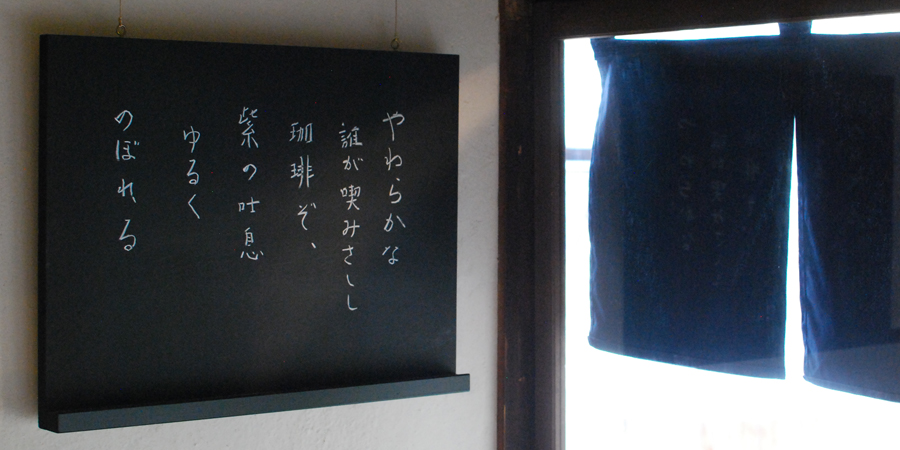 やわらかな
誰が喫みさしし
珈琲ぞ、
紫の吐息
ゆるく
のぼれる